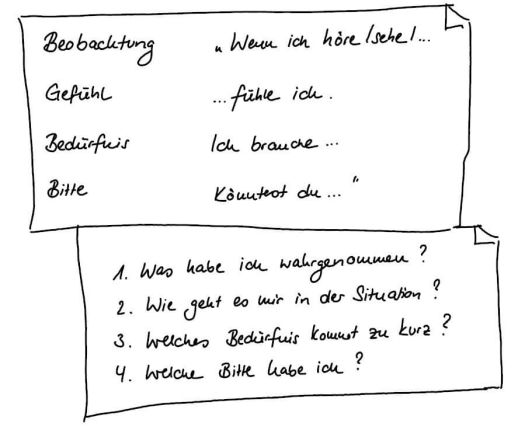 Beobachtung „Wenn ich höre/sehe/...
Gefühl ...fühle ich.
Bedürfnis Ich brauche ...
Bitte Könntest du..."
1. Was habe ich wahrgenommen?
2. Wie geht es mir in der Situation?
3. Welches Bedürfnis kommt zu kurz?
4. Welche Bitte habe ich?